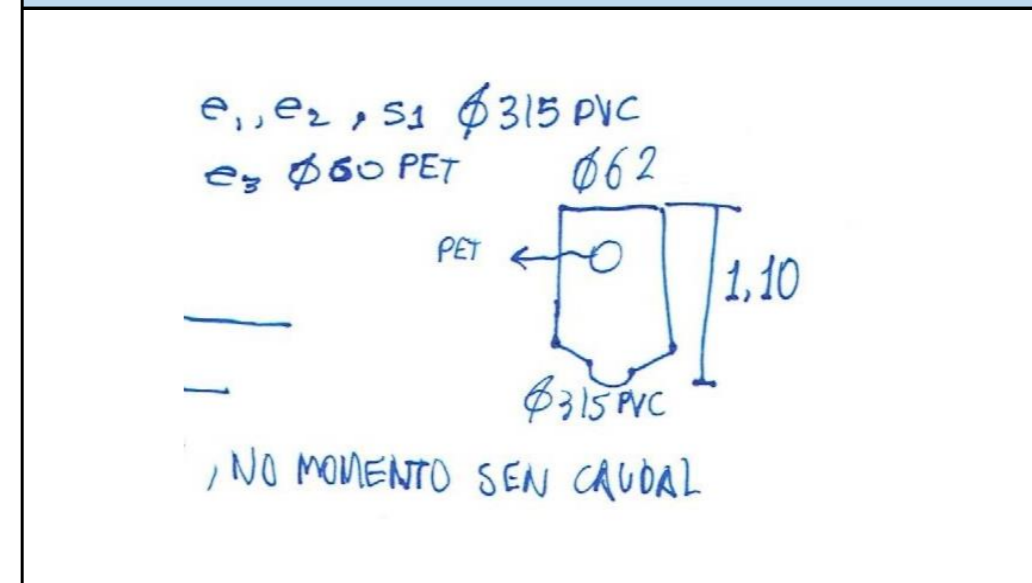 e1, e2, S1 Ø315 PVC
e3 Ø60 PET
Ø62
PET
1,10
Ø315 PVC
, NO MOMENTO SEN CAUDAL